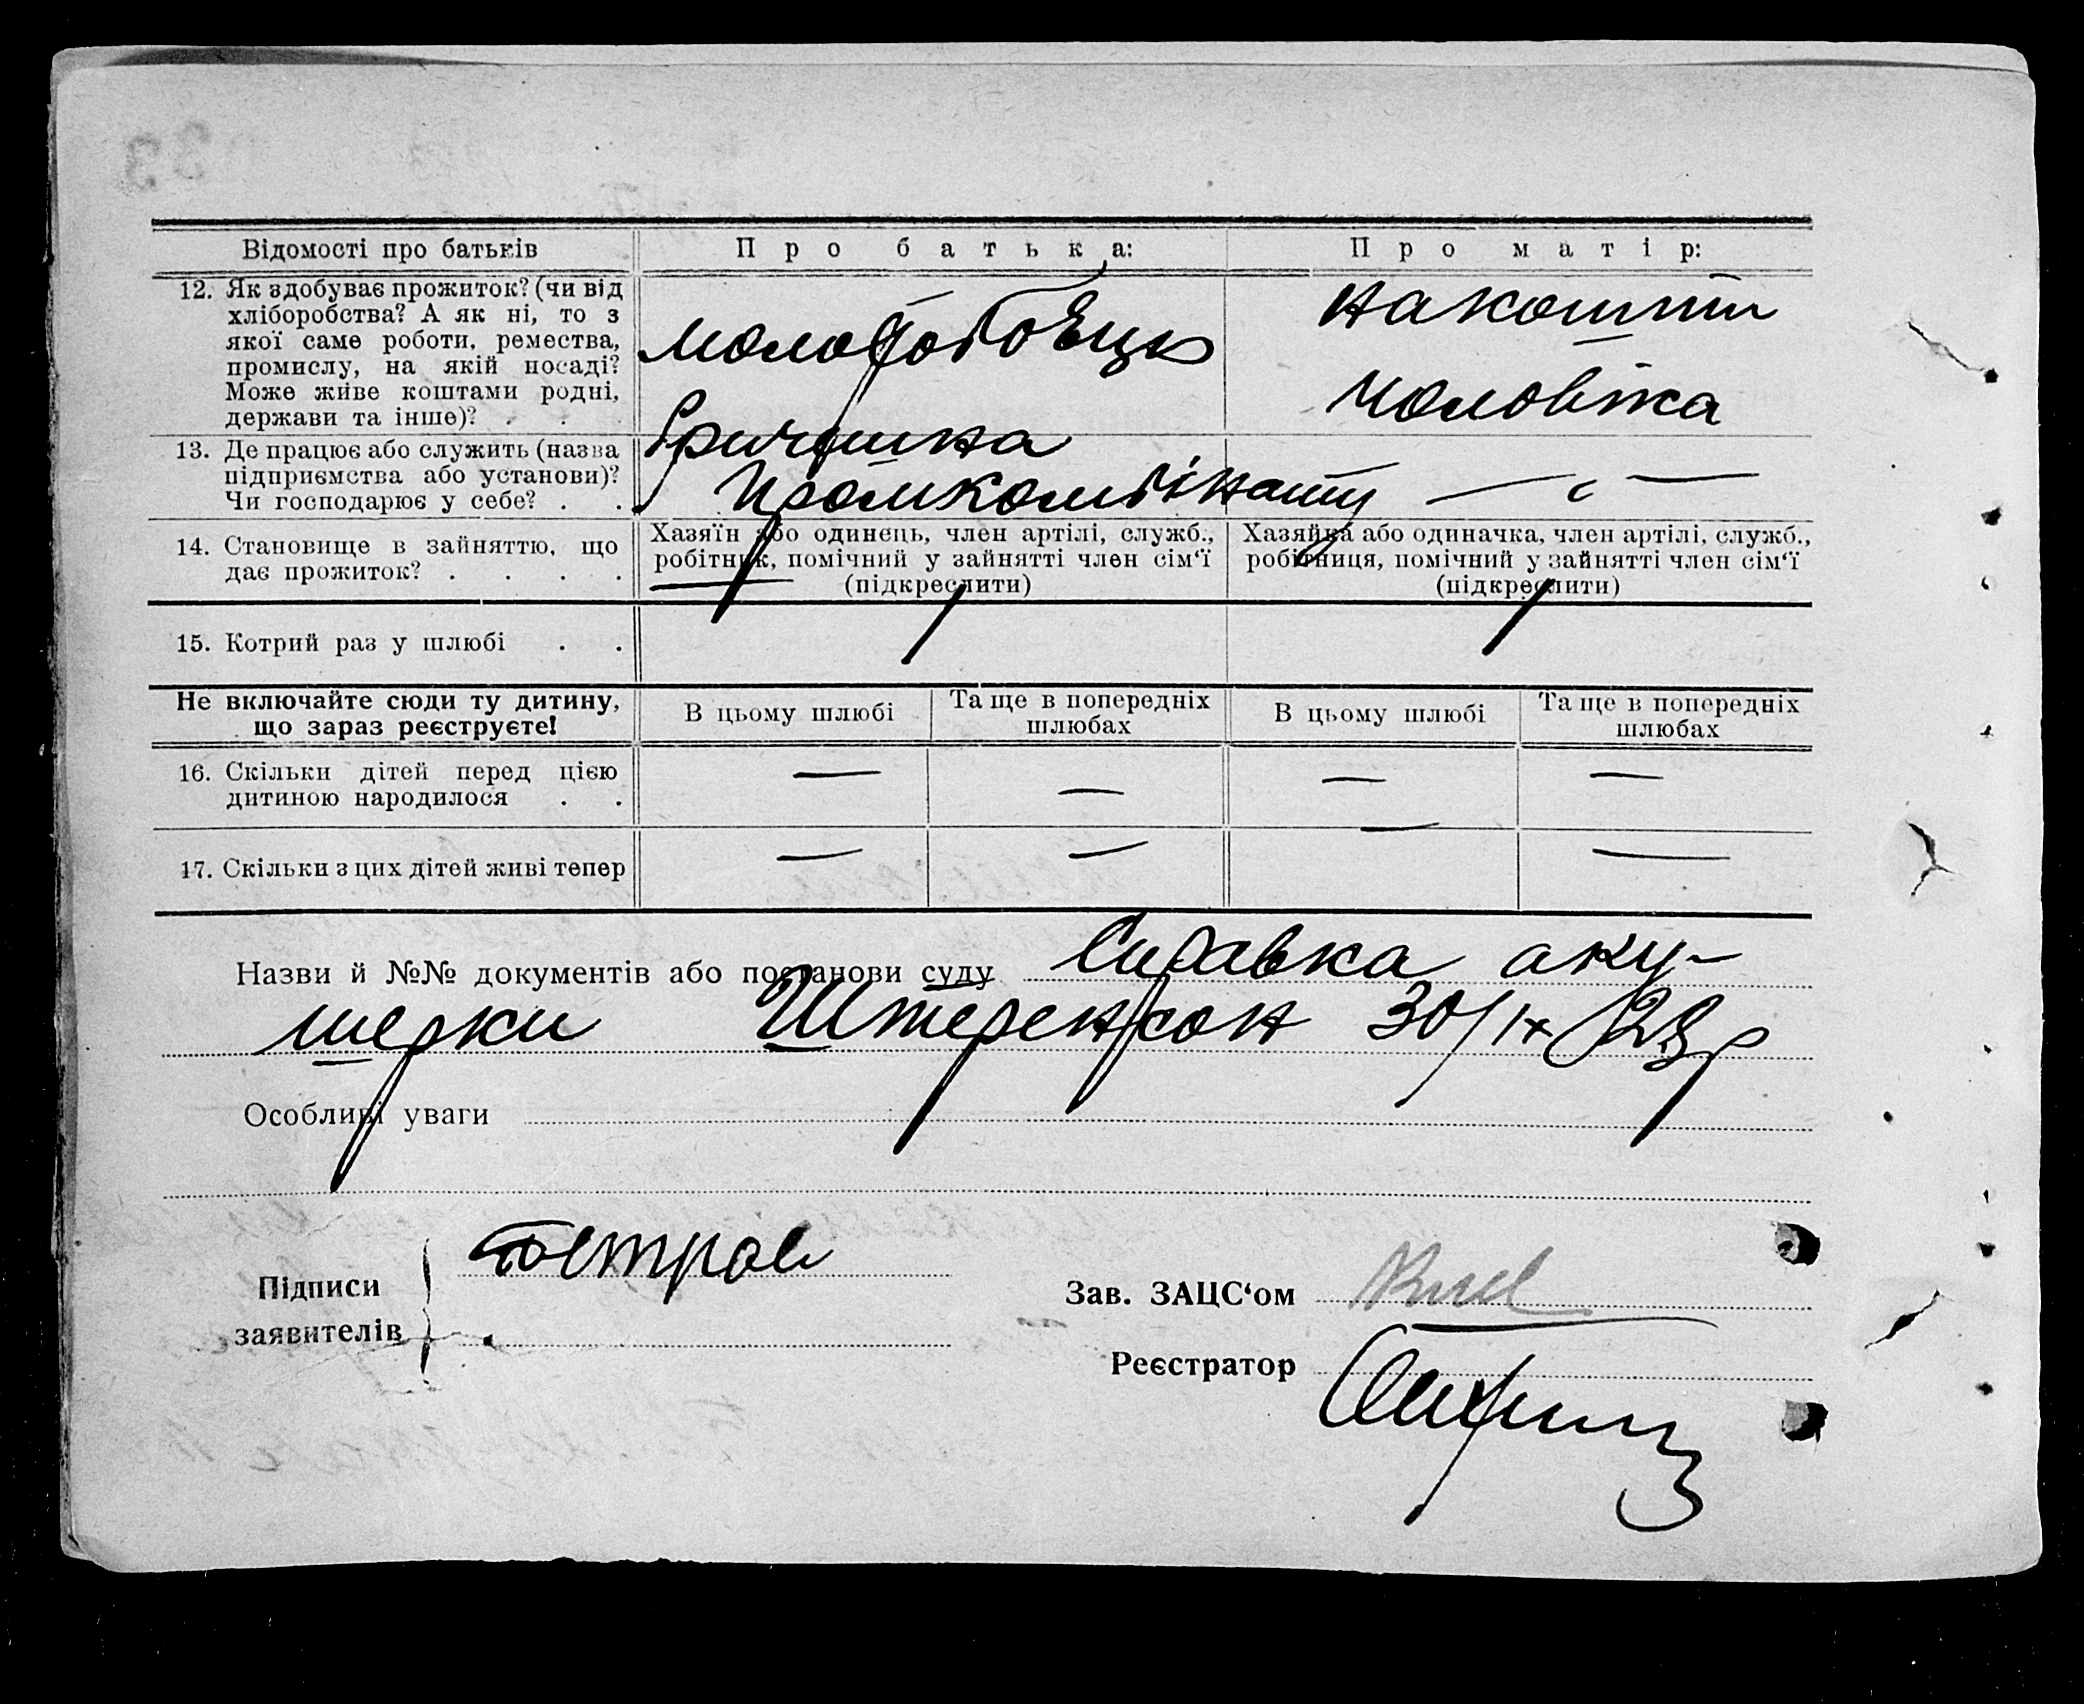 Відомості про батьків
Про батька:
Про матір:
12. Як здобуває прожиток? (чи від
хліборобства? А як ні, то з
якої саме роботи, ремества,
промислу, на якій посаді?
Може живе коштами родні,
держави та інше)? . .
молотобоєць
на кошти
чоловіка
13. Де працює або служить (назва
підприємства або установи)?
Чи господарює у себе? . .
Промкомбінату
— " —
14. Становище в зайняттю, що
дає прожиток? . . . .
Хазяїн або одинець, член артілі, служб.,
робітник, помічний у зайнятті член сім'ї
(підкреслити)
Хазяйка або одиначка, член артілі, служб.,
робітниця, помічний у зайнятті член сім'ї
(підкреслити)
15. Котрий раз у шлюбі . .
1
1
Не включайте сюди ту дитину,
що зараз реєструєте!
В цьому шлюбі
Та ще в попередніх
шлюбах
В цьому шлюбі
Та ще в попередніх
шлюбах
16. Скільки дітей перед цією
дитиною народилося . .
— — — —
17. Скільки з цих дітей живі тепер
— — — —
Назви й №№ документів або постанови суду Справка аку-
шерки Штеренсон 30/IX
Особливі уваги
Підписи
заявителів
Зав. ЗАЦС'ом
Реєстратор